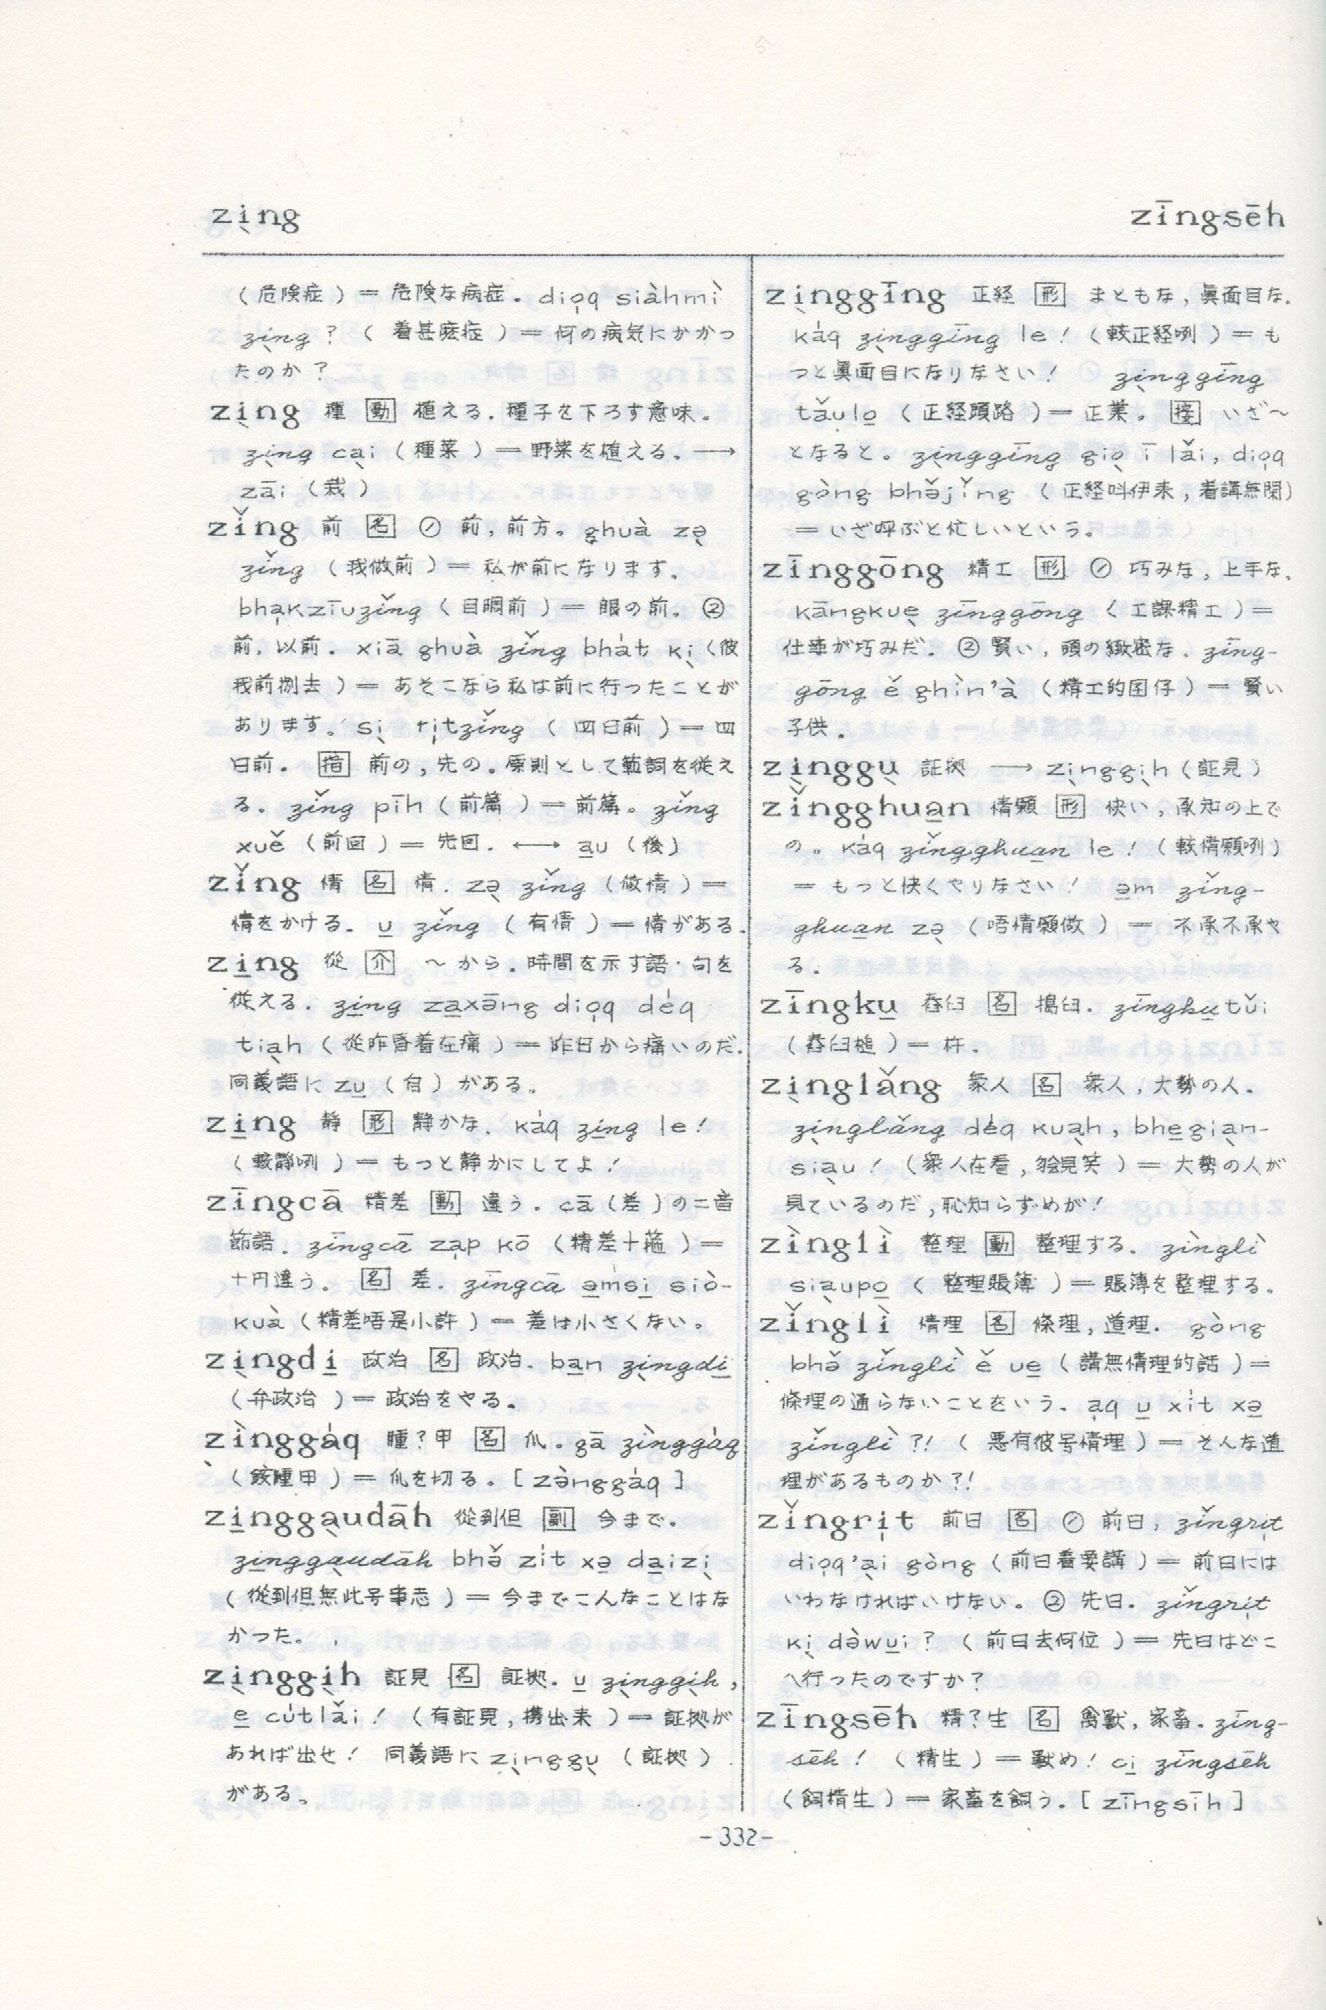 zi̖ng
zīngsēh
（危険症）＝ 危険な病症．di̍oq siàhmì
zi̖ng？（着甚麼症）＝何の病気にかかつ
たのか？
zi̖ng 種 [動] 植える．種子を下ろす意味。
zi̖ng ca̖i（種菜）＝野菜を植える．⟶
zāi（栽）
zǐng 前 [名] ① 前，前方。ghuà zə̖
zǐng（我做前）＝ 私が前になります．
bha̍kziūzǐng（目睭前）＝ 眼の前。②
前，以前．xiā ghuà zǐng bhát ki̖（彼
我前捌去）＝ あそこなら私は前に行ったことが
あります．si̖ ri̍tzǐng（四日前）＝四
日前． [指] 前の，先の。原則として範詞を従え
る．zǐng pīh（前篇）＝前篇。zǐng
xuě（前回）＝ 先回．⟷ a̱u（後）
zǐng 情 [名] 情．zə̖ zǐng（做情）＝
情をかける．u̱ zǐng（有情）＝情がある．
zi̱ng 從 [介] ～から．時間を示す語・句を
従える．zi̱ng za̱xāng di̍oq déq
tia̖h（從昨昏着在痛）＝昨日から痛いのだ．
同義語に zu̱（自）がある。
zi̱ng 静 [形] 静かな．káq zi̱ng le！
（較静咧）＝もっと静かにしてよ！
zīngcā 精差 [動] 違う．cā（差）の二音
節語．zīngcā za̍p kō（精差十箍）＝
十円違う． [名] 差．zīngcā ə̱msi̱ siò-
kuà（精差唔是小許）＝ 差は小さくない。
zi̖ngdi̱ 政治 [名] 政治．ba̱n zi̖ngdi̱
（弁政治）＝政治をやる。
zìnggáq 腫？甲 [名] 爪．gā zìnggáq
（鉸腫甲）＝ 爪を切る．[ zə̀nggáq ]
zi̱ngga̖udāh 從到但 [副] 今まで．
zi̱ngga̖udāh bhə̌ zít xə̱ da̱izi̖
（從到但無此号事志）＝今までこんなことはな
かつた。
zi̖nggi̖h 証見 [名] 証拠．u̱ zi̖nggi̖h，
e̱ cútlǎi！（有証見，携出来）＝証拠が
あれば出せ！ 同義語に zi̖nggu̖（証拠）
がある。
zi̖nggīng 正経 [形] まともな，眞面目な．
káq zi̖nggīng le！（較正経咧）＝も
つと眞面目になりなさい！ zi̖nggīng
tǎulo̱（正経頭路）＝正業。[接] いざ～
となると。zi̖nggīng gio̖ ī lǎi，di̍oq
gòng bhə̌jǐng（正経叫伊来，着講無閒）
＝いざ呼ぶと忙しいという。
zīnggōng 精工 [形] ① 巧みな，上手な．
kāngkue̖ zīnggōng（工課精工）＝
仕事が巧みだ．② 賢い，頭の緻密な．zīng-
gōng ě ghìn’à（精工的囝仔）＝賢い
子供．
zi̖nggu̖ 証拠 ⟶ zi̖nggi̖h（証見）
zǐngghua̱n 情願 [形] 快い，承知の上で
の。káq zǐngghua̱n le！（較情願咧）
＝ もっと快くやりなさい！ ə̱m zǐng-
ghua̱n zə̖（唔情願做）＝ 不承不承や
る．
zīngku̱ 舂臼 [名] 搗臼．zīngku̱tǔi
（舂臼槌）＝杵．
zi̖nglǎng 衆人 [名] 衆人，大勢の人．
zi̖nglǎng déq kua̖h，bhe̱gia̖n-
sia̖u！（衆人在看，袂見笑）＝大勢の人が
見ているのだ，恥知らずめが！
zìnglì 整理 [動] 整理する．zìnglì
sia̖upo̱（整理賬簿）＝賬簿を整理する。
zǐnglì 情理 [名] 條理，道理．gòng
bhə̌ zǐnglì ě ue̱（講無情理的話）＝
條理の通らないことをいう．a̍q u̱ xít xə̱
zǐnglì？！（悪有彼号情理）＝そんな道
理があるものか？！
zǐngri̍t 前日 [名] ① 前日，zǐngri̍t
di̍oq’a̖i gòng（前日着要講）＝前日には
いわなければいけない。② 先日．zǐngri̍t
ki̖ də̀wu̱i？（前日去何位）＝先日はどこ
へ行ったのですか？
zīngsēh 精？生 [名] 禽獣，家畜．zīng-
sēh！（精生）＝獣め！ ci̱ zīngsēh
（飼精生）＝家畜を飼う．[ zīngsīh ]
-332-